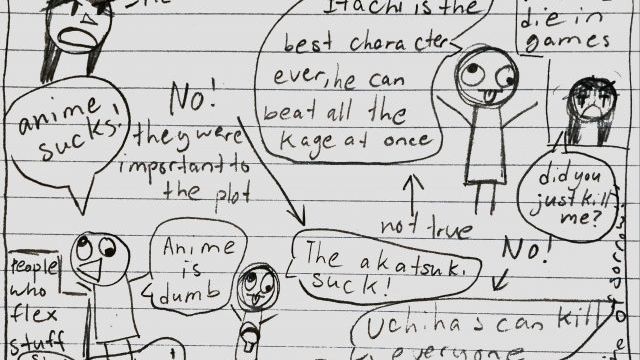 Itachi is the
best character
ever, he can
beat all the
Kage at once
die in
games
anime
sucks!
No!
they were
important to
the plot
not true
did you
just kill
me?
No!
People
who
flex
stuff
Anime
is
dumb
The akatsuki
suck!
Uchihas can kill
everyone